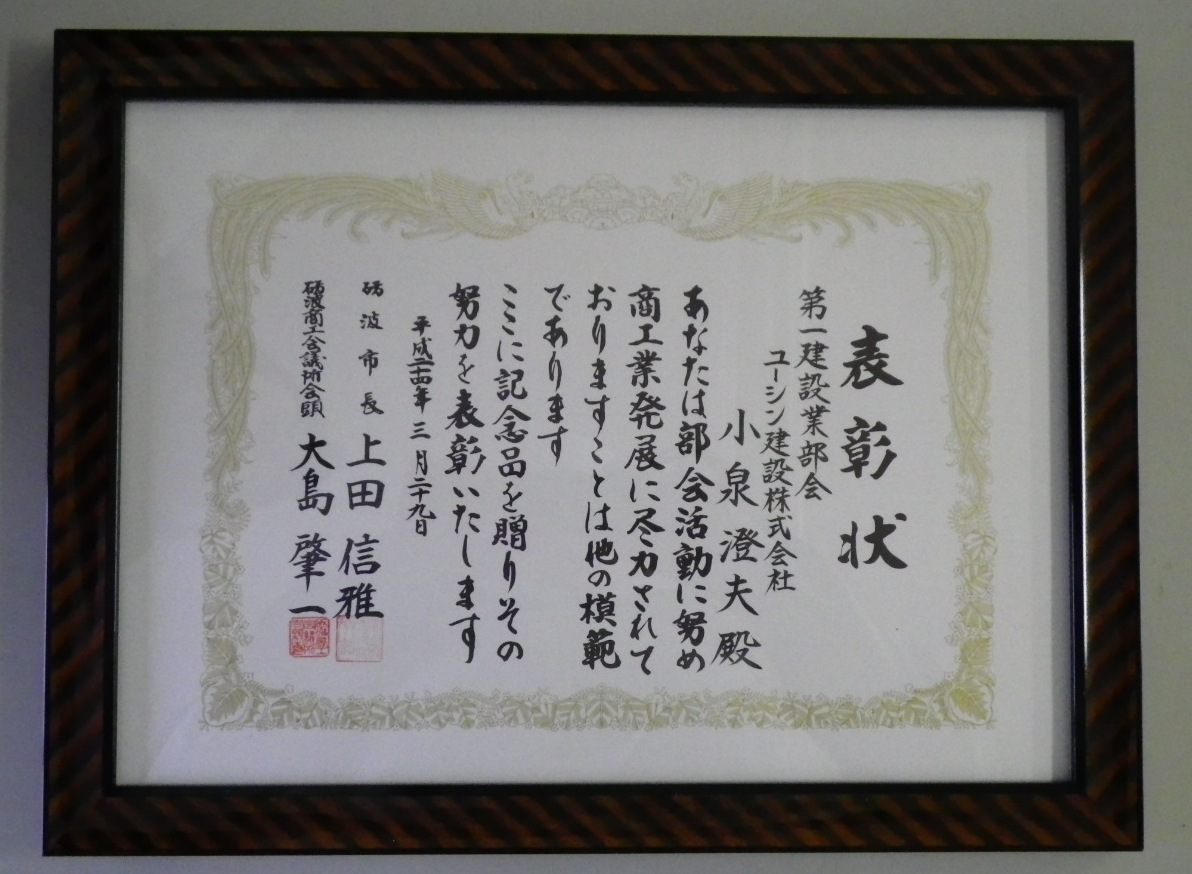 表彰状
第一建設業部会
ユーシン建設株式会社
小泉澄夫殿
あなたは部会活動に努め
商工業発展に尽力されて
おりますことは他の模範
であります
ここに記念品を贈りその
努力を表彰いたします
平成二十四年三月二十九日
砺波市長 上田信雅
砺波商工会議所会頭 大島肇一